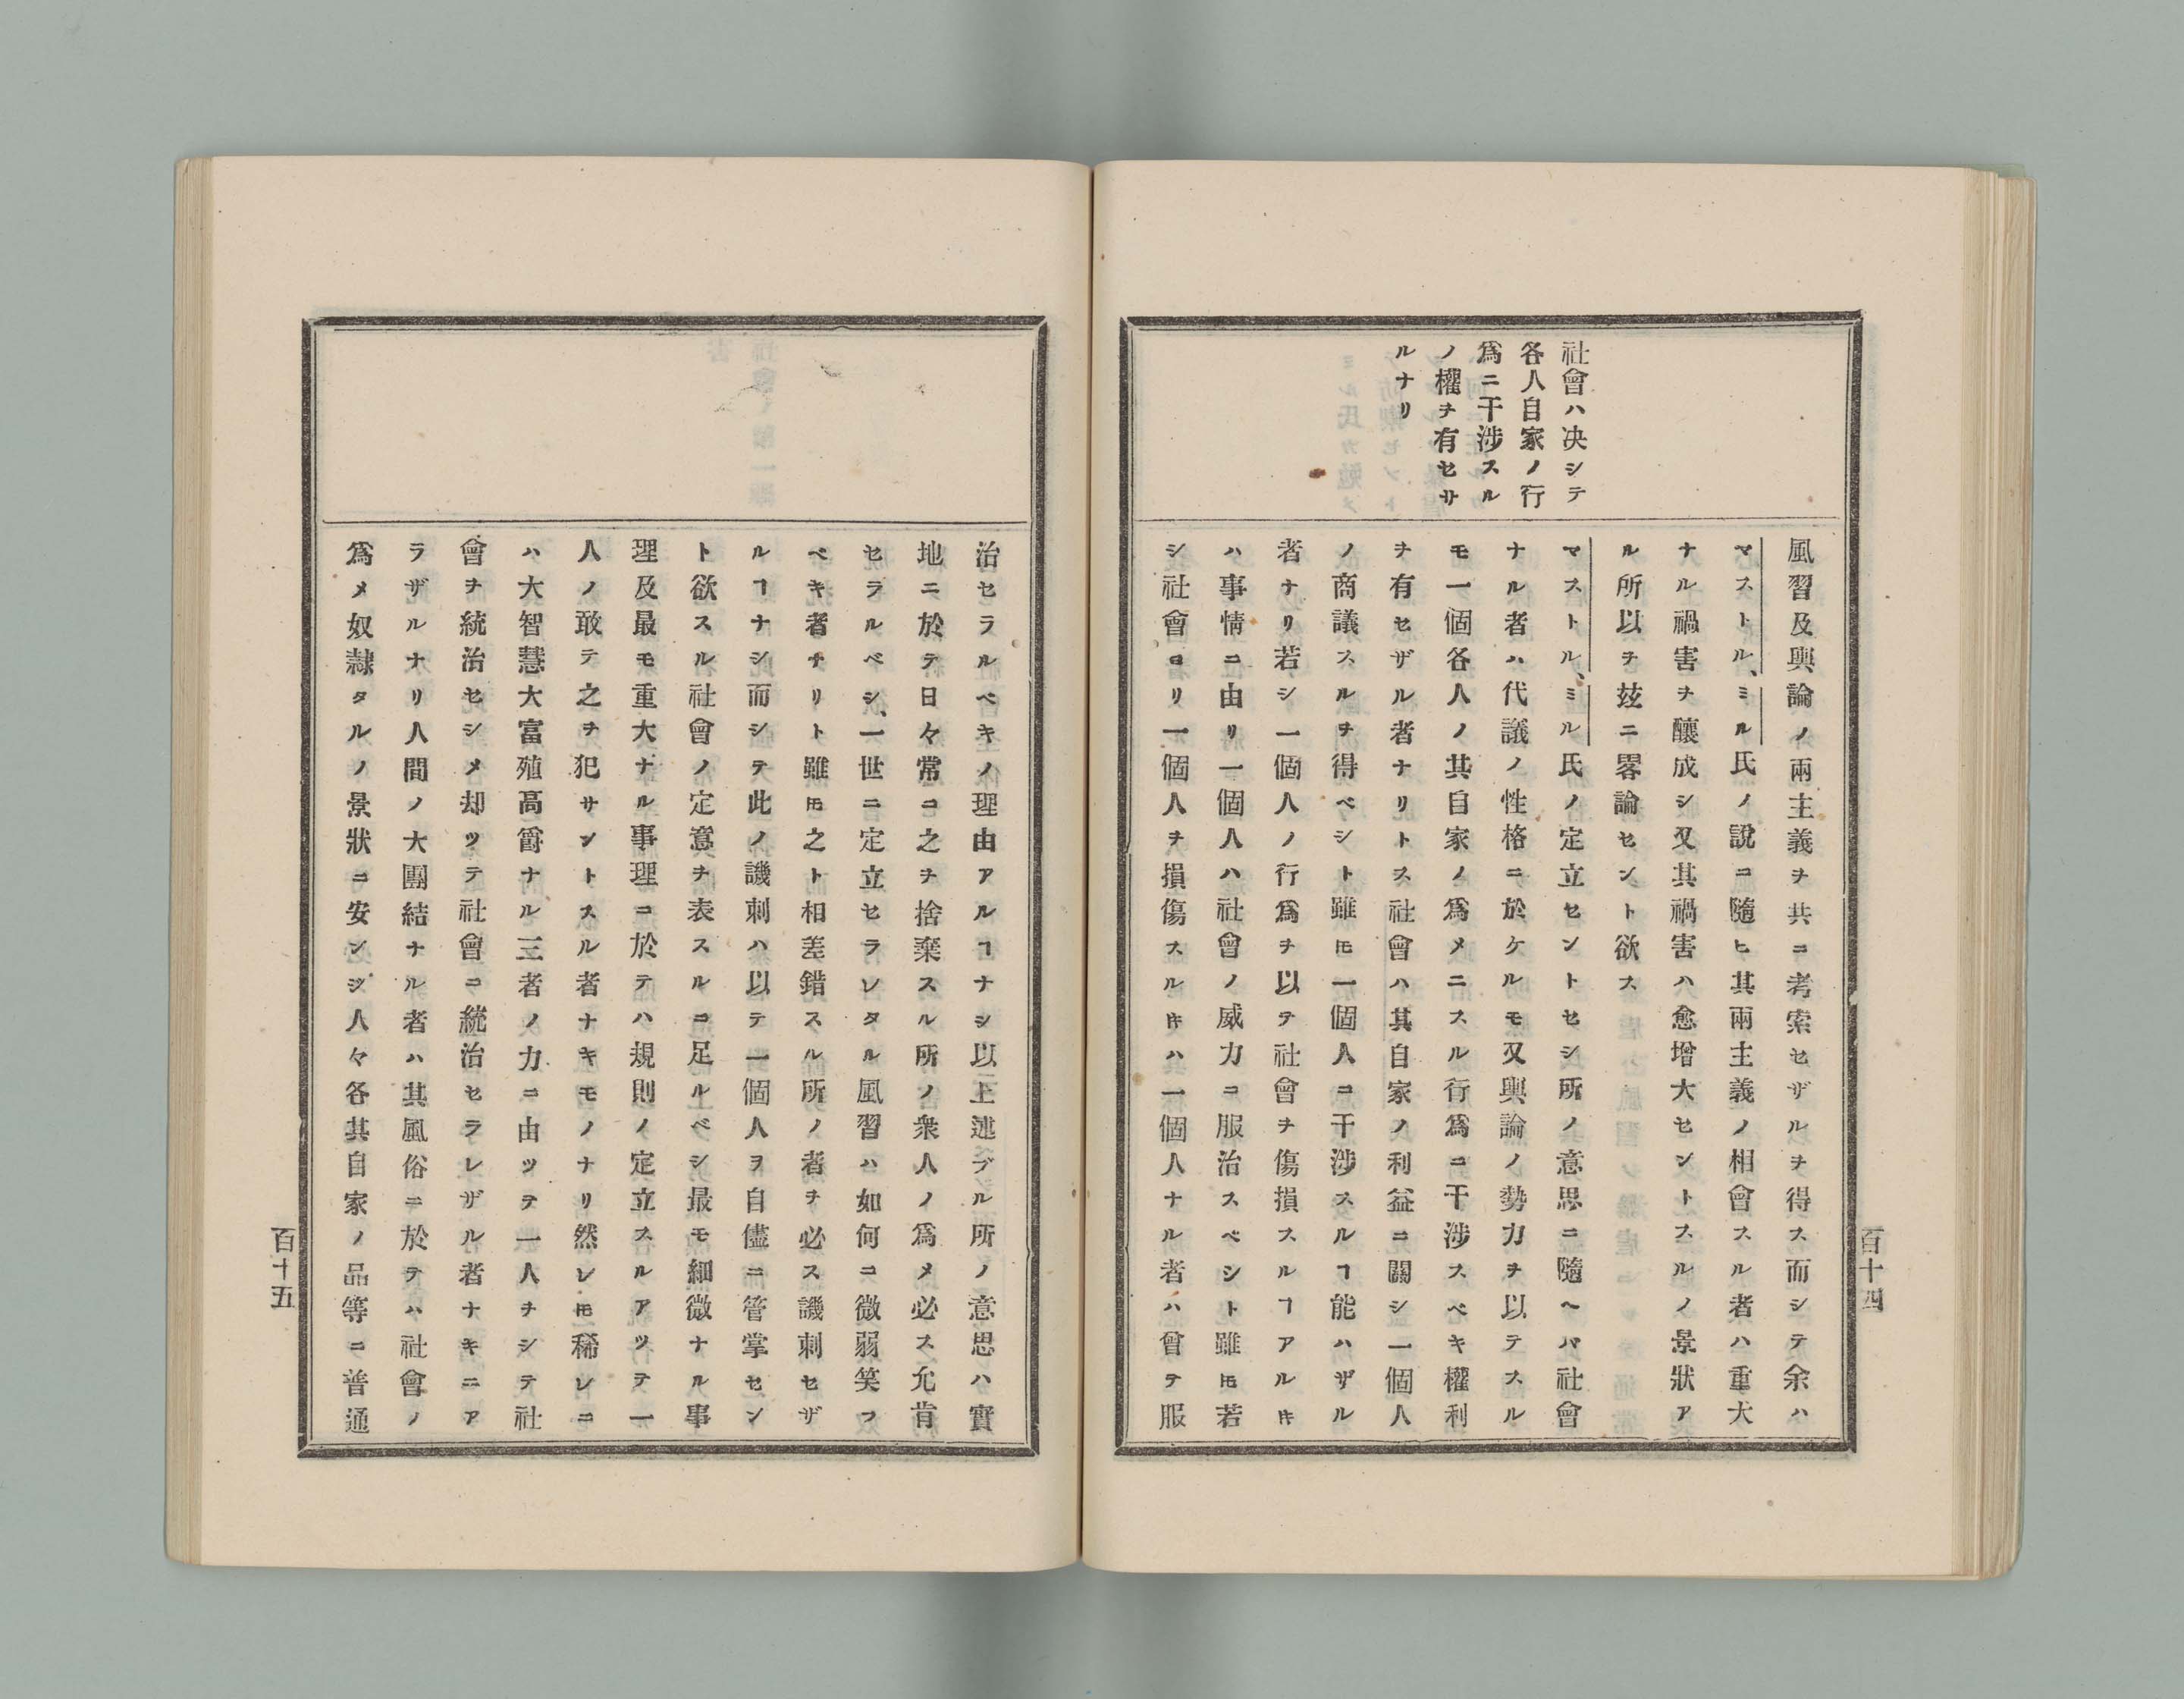 社會ハ决シテ
各人自家ノ行
爲ニ干渉スル
ノ權ヲ有セサ
ルナリ
風習及輿論ノ兩主義ヲ共ニ考索セザルヲ得ス而シテ余ハ
マストル、ミル氏ノ說ニ隨ヒ其兩主義ノ相會スル者ハ重大
ナル禍害ヲ釀成シ又其禍害ハ愈增大セントスルノ景狀ア
ル所以ヲ玆ニ畧論セント欲ス
マストル、ミル氏ノ定立セントセシ所ノ意思ニ隨ヘバ社會
ナル者ハ代議ノ性格ニ於ケルモ又輿論ノ勢力ヲ以テスル
モ一個各人ノ其自家ノ爲メニスル行爲ニ干渉スベキ權利
ヲ有セザル者ナリトス社會ハ其自家ノ利益ニ關シ一個人
ノ商議スルヲ得ベシト雖𪜈一個人ニ干渉スルヿ能ハザル
者ナリ若シ一個人ノ行爲ヲ以テ社會ヲ傷損スルヿアルキ
ハ事情ニ由リ一個人ハ社會ノ威力ニ服治スベシト雖𪜈若
シ社會ヨリ一個人ヲ損傷スルキハ一個人ナル者ハ曾テ服
百十四
治セラルベキノ理由アルヿナシ以上述ブル所ノ意思ハ實
地ニ於テ日々常ニ之ヲ捨棄スル所ノ衆人ノ爲メ必ス允肯
セラルベシ、一世ニ定立セラレタル風習ハ如何ニ微弱笑フ
ベキ者ナリト雖𪜈之ト相差錯スル所ノ者ヲ必ス譏刺セザ
ルヿナシ而シテ此ノ譏刺ハ以テ一個人ヲ自儘ニ管掌セン
ト欲スル社會ノ定意ヲ表スルニ足ルベシ最モ細微ナル事
理及最モ重大ナル事理ニ於テハ規則ノ定立スルアツテ一
人ノ敢テ之ヲ犯サントスル者ナキモノナリ然レ𪜈稀レニ
ハ大智慧大富殖高爵ナル三者ノ力ニ由ツテ一人ヲシテ社
會ヲ統治セシメ却ツテ社會ニ統治セラレザル者ナキニア
ラザルナリ人間ノ大團結ナル者ハ其風俗ニ於テハ社會ノ
爲メ奴隷タルノ景狀ニ安ンジ人々各其自家ノ品等ニ普通
百十五